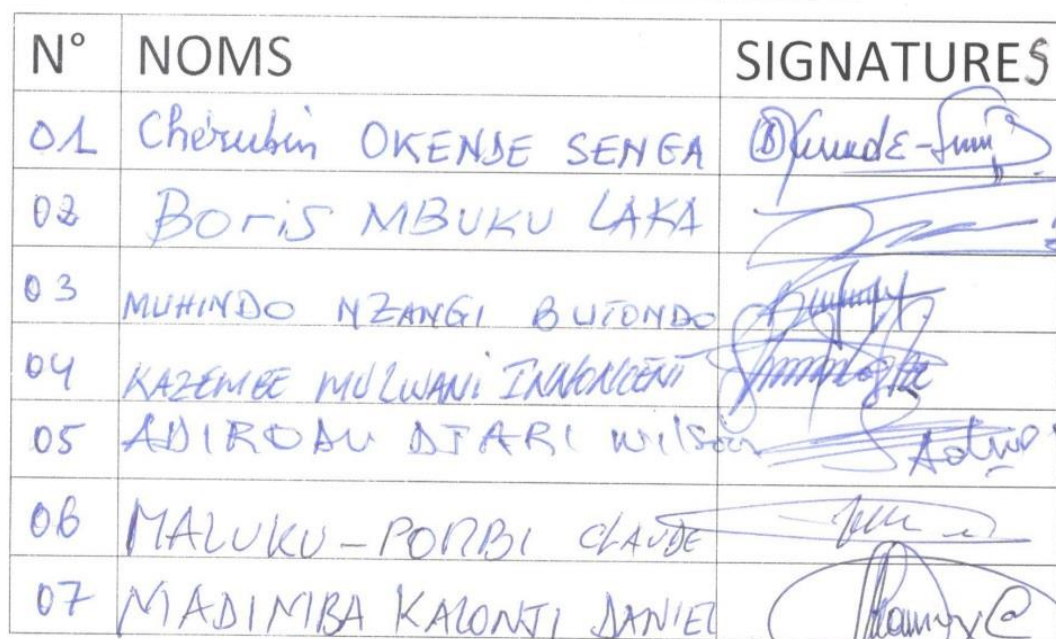 N° NOMS SIGNATURES
01 Chérubin OKENDE SENGA
02 Boris MBUKU LAKA
03 MUHINDO NZANGI BUTONDO
04 KAZEMBE MULWANI INNONCENT
05 ADIRODU DJARI Wilson
06 MALUKU-PORBI CLAUDE
07 MADIMBA KALONJI DANIEL